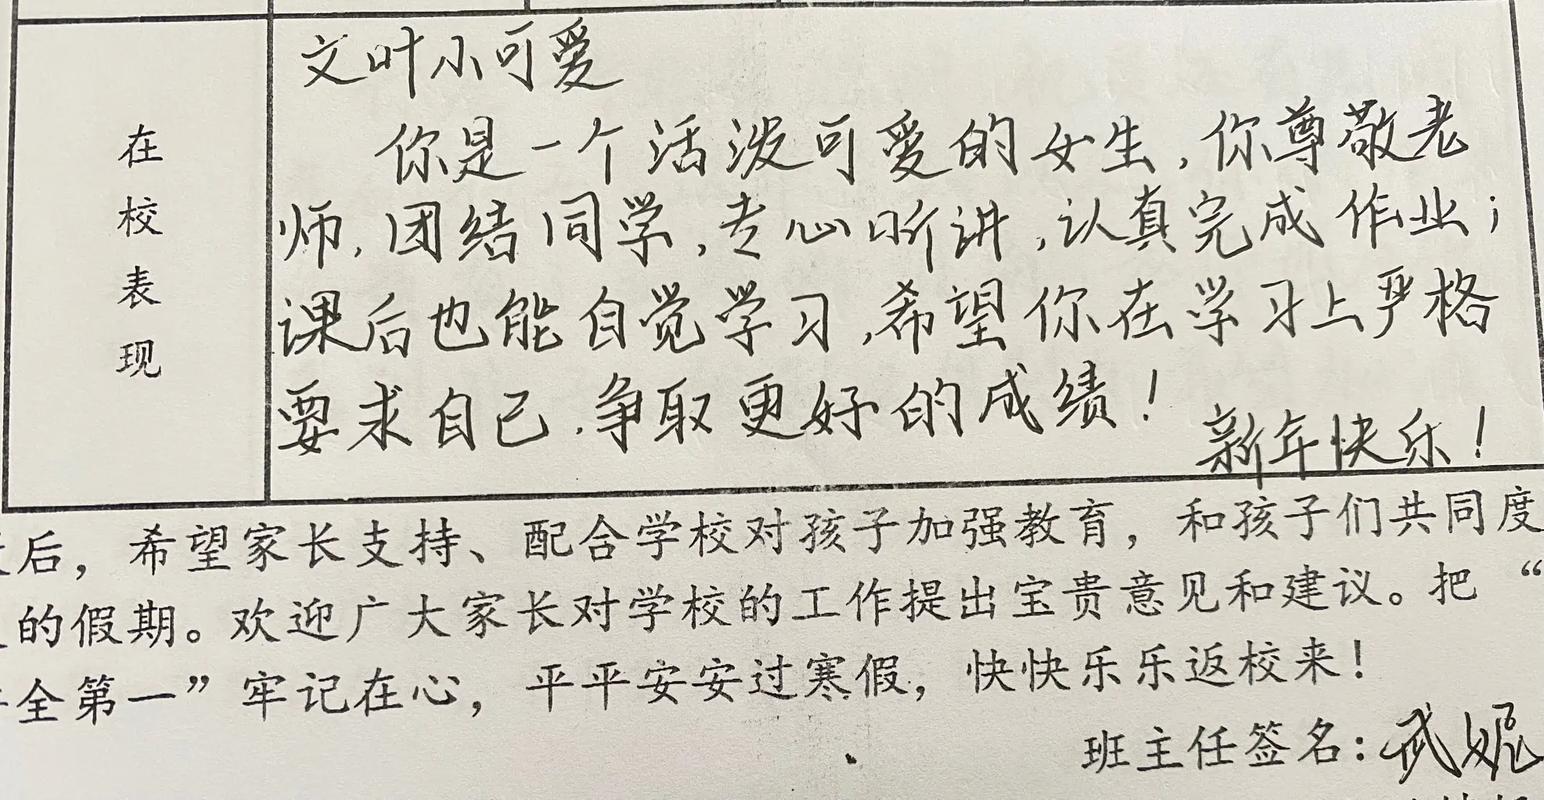 在校表现
文叶小可爱
你是一个活泼可爱的女生,你尊敬老
师,团结同学,专心听讲,认真完成作业;
课后也能自觉学习,希望你在学习上严格
要求自己,争取更好的成绩!
新年快乐!
后，希望家长支持、配合学校对孩子加强教育，和孩子们共同度
的假期。欢迎广大家长对学校的工作提出宝贵意见和建议。把“
全第一”牢记在心，平平安安过寒假，快快乐乐返校来！
班主任签名：武妮